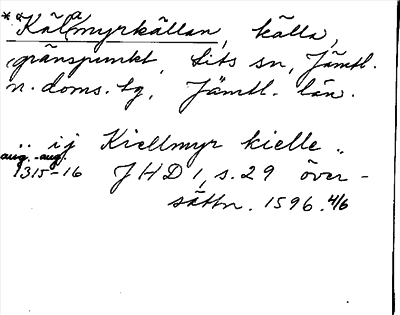 *Käl(a)myrkällan, källa,
gränspunkt, Lits sn, Jämtl.
n. doms. tg, Jämtl. län.
.. ij Kiellmyr kielle ..
aug.-aug.
1315-16 JHD 1, s. 29 över-
sättn. 1596. 4/6